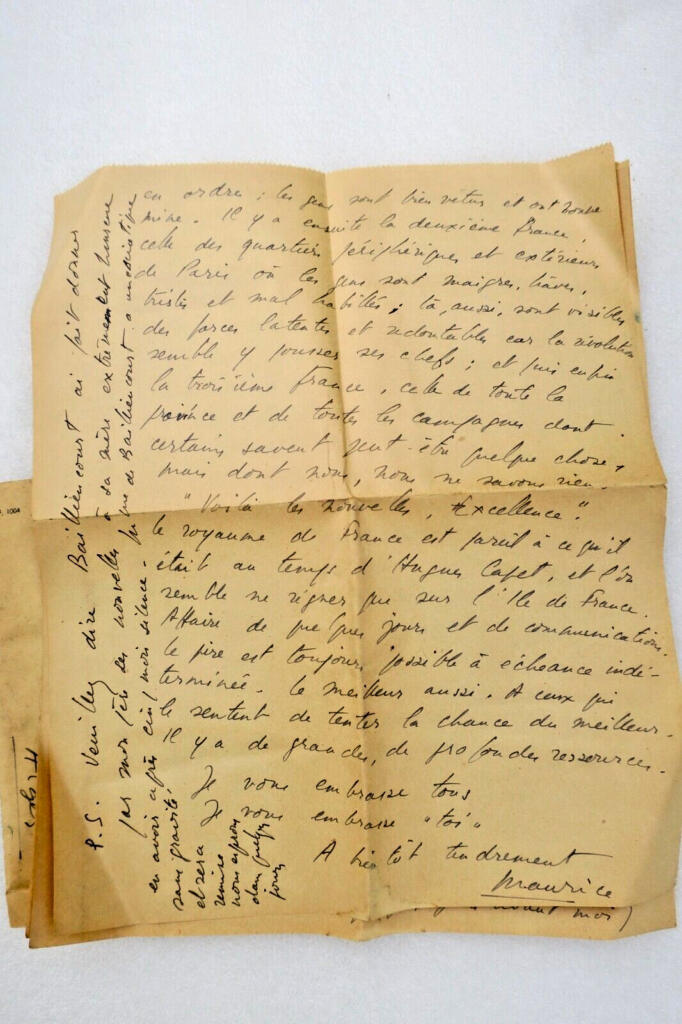 en ordre ; les gens sont bien vêtus et ont bonne
mine. Il y a ensuite la deuxième France,
celle des quartiers périphériques et extérieurs
de Paris où les gens sont maigres, hâves,
tristes et mal habillés ; là, aussi, sont visibles
des forces latentes et redoutables car la révolution
semble y pousser ses chefs ; et puis enfin
la troisième France, celle de toute la
province et de toutes les campagnes dont
certains savent peut-être quelque chose,
mais dont nous, nous ne savons rien.
"Voilà les nouvelles, Excellence."
le royaume de France est pareil à ce qu'il
était au temps d'Hugues Capet, et l'on
semble ne régner que sur l'Ile de France.
Affaire de quelques jours et de communications.
le pire est toujours possible à échéance indé-
terminée. le meilleur aussi. A ceux qui
le sentent de tenter la chance du meilleur.
Il y a de grandes, de profondes ressources.
Je vous embrasse tous
Je vous embrasse "toi"
A bientôt tendrement
Maurice
avant moi)
P.S. Veuillez dire Bailliencourt ai fait donner
par mon père des nouvelles à sa mère extrêmement heureuse
en avoir après cinq mois silence. que de Bailliencourt a
sans gravité
et sera
remise
nous espérons
dans quelques
jours
1004